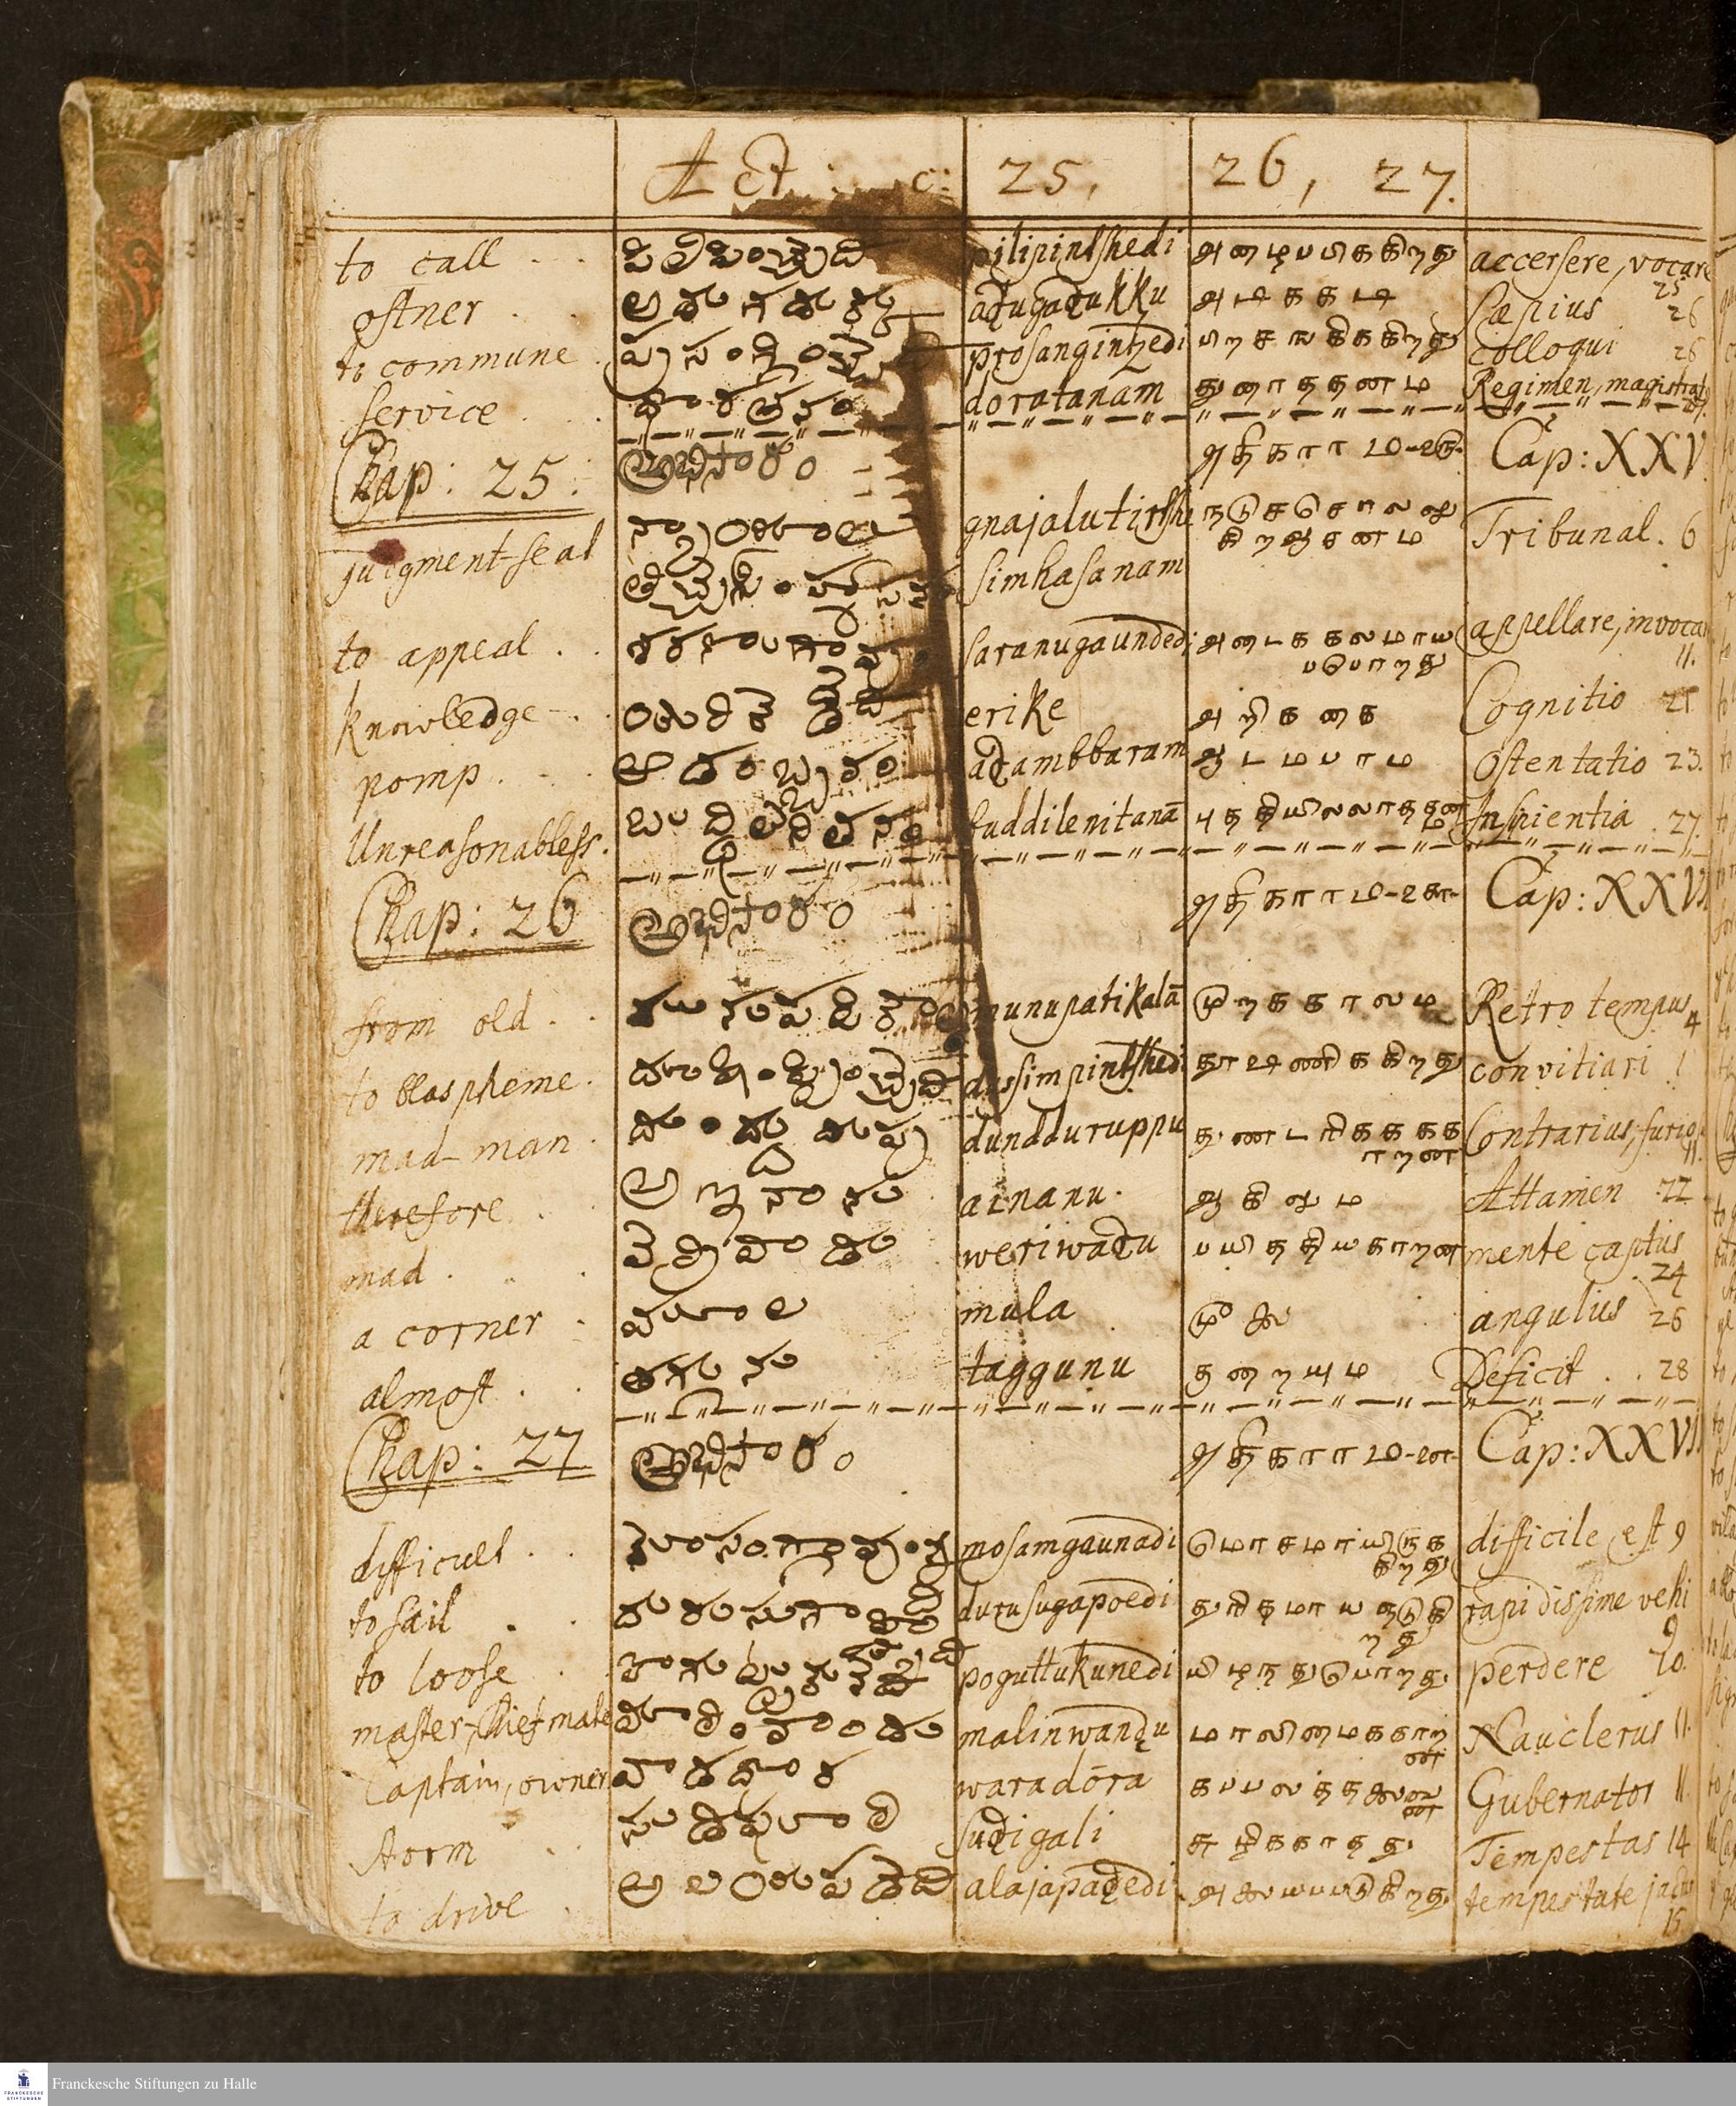 Act: c: 25, 26, 27.
to call . . . పిలిపించ్చేది pilipintshedi அழைபபிககிறது accersere, vocare 25
oftner . . అడుగడుక్కు adugadukku அடிககடி Sæpius 26
to commune . ప్రసంగించే prosangintzedi பிறசஙகிககிறது colloqui 26
service . . దొరతనం doratanam துரைததனம Regimen, magistrat 27.
Chap: 25: అధికారం அதிகாரம-உரு- Cap: XXV
judgment-seat న్యాయాలు gnajalutirshe நடுசசெசாலலு Tribunal. 6
తీర్చే సింహాసనం simhasanam கிறஆசனம
to appeal . . శరనుగా saranugaunddedi அடைககலமாய appellare, invocar
படபோறது 11.
knowledge . . యెరికె erike அறிககை Cognitio 21
pomp . . . ఆడంబ్బరం adambbaram ஆடமபரம Ostentatio 23.
Unreasonabless. బుద్దిలేనితనం buddilenitanā புததியிலலாததன Insipientia . 27.
Chap: 26 అధికారం அதிகாரம-உசு- Cap: XXVI
from old . . మునుపటి munupatikalā முறககாலம Retro tempus 4
to blaspheme . దూషింపించ్చేది dussimpintshedi தூஷணிககிறது convitiari 1
mad-man . దుండ్డుడుప్పు dundduruppu துணடரிககக Contrarius, furio
ாறன 11.
therefore . . అఇనాను ainanu. ஆகிலும Attamen 22
mad . . . వెర్రివాడు weriwadu பயிததியகாறன mente captus
24
a corner . మూల mula மூலை angulus 26
almost . . తగ్గును taggunu தனறயும Deficit . . 28
Chap: 27 అధికారం அதிகாரம-உஎ- Cap: XXVII
difficult . . మోసంగా mosamgaunadi மோசமாயிருக difficile est 9
கிறது
to sail . దురుసుగాపోయేది durusugapoedi துரிதமாய ஓடுகி rapidissime vehi
றது 9
to loose . పోగుట్టుకునేది poguttukunedi யிழநதுபோறது perdere 10.
master, Chief mate మాలింవాండు malinwandu மாலிமைககாற Nauclerus 11.
ன
Captain, owner వాడదొర waradōra கபபலததலைவ Gubernator 11
ன
storm . . సుడిగాలి sudigali சுழிககாதது Tempestas 14
to drive . అలయపడేది alajapadedi அலைபபடுகிறது tempestate jactar
15
Franckesche Stiftungen zu Halle
FRANCKESCHE
STIFTUNGEN